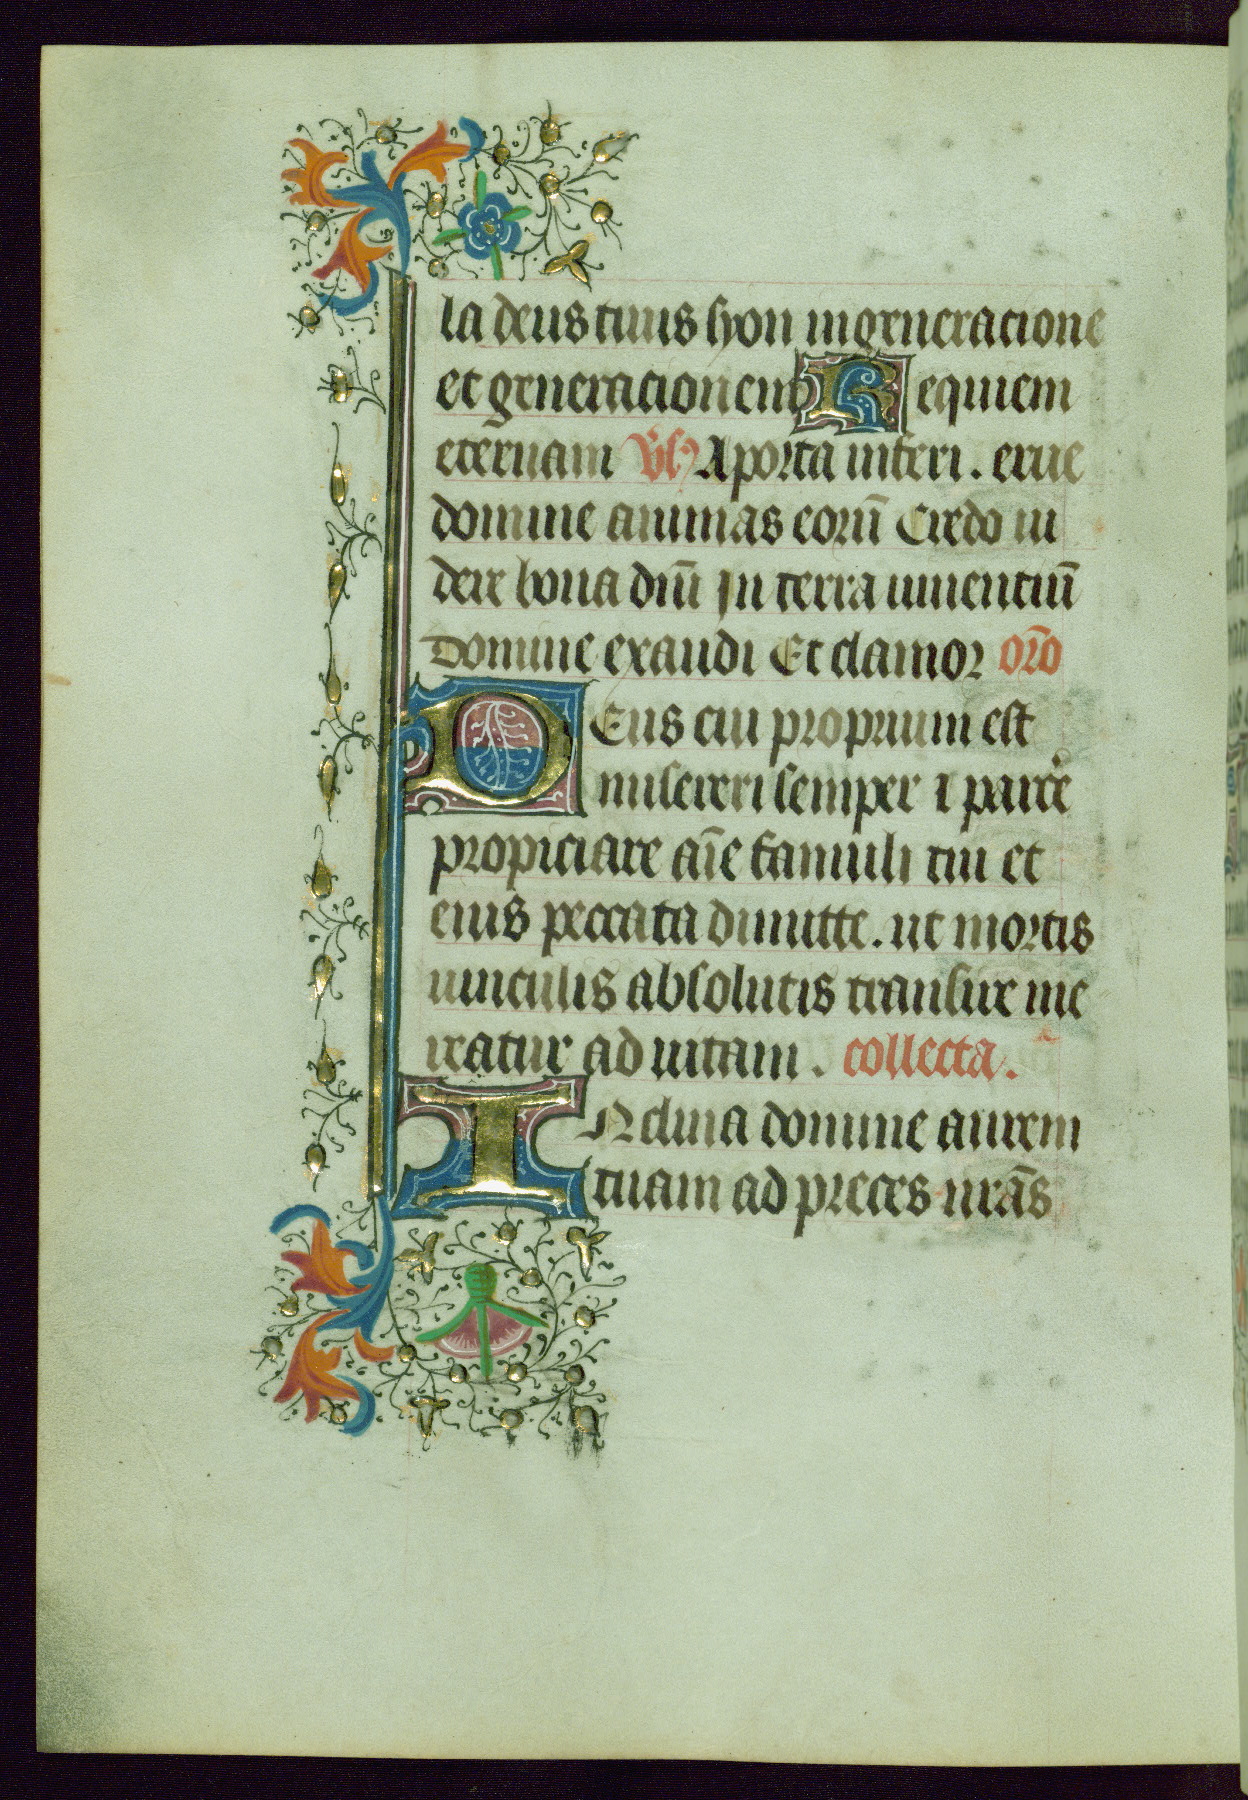 la deus tuus syon in generacione
et generacionem Requiem
eternam vs̃ A porta inferi . erue
domine animas eorũ Credo ui
dere bona dñi In terra uiuentiũ
Domine exaudi Et clamor orõ
Deus cui proprium est
misereri semper ⁊ parcẽ
propiciare aĩe famuli tui et
eius peccata dimitte . ut mortis
uinculis absolutis transire me
reatur ad uitam . collecta .
INclina domine aurem
tuam ad preces nrãs